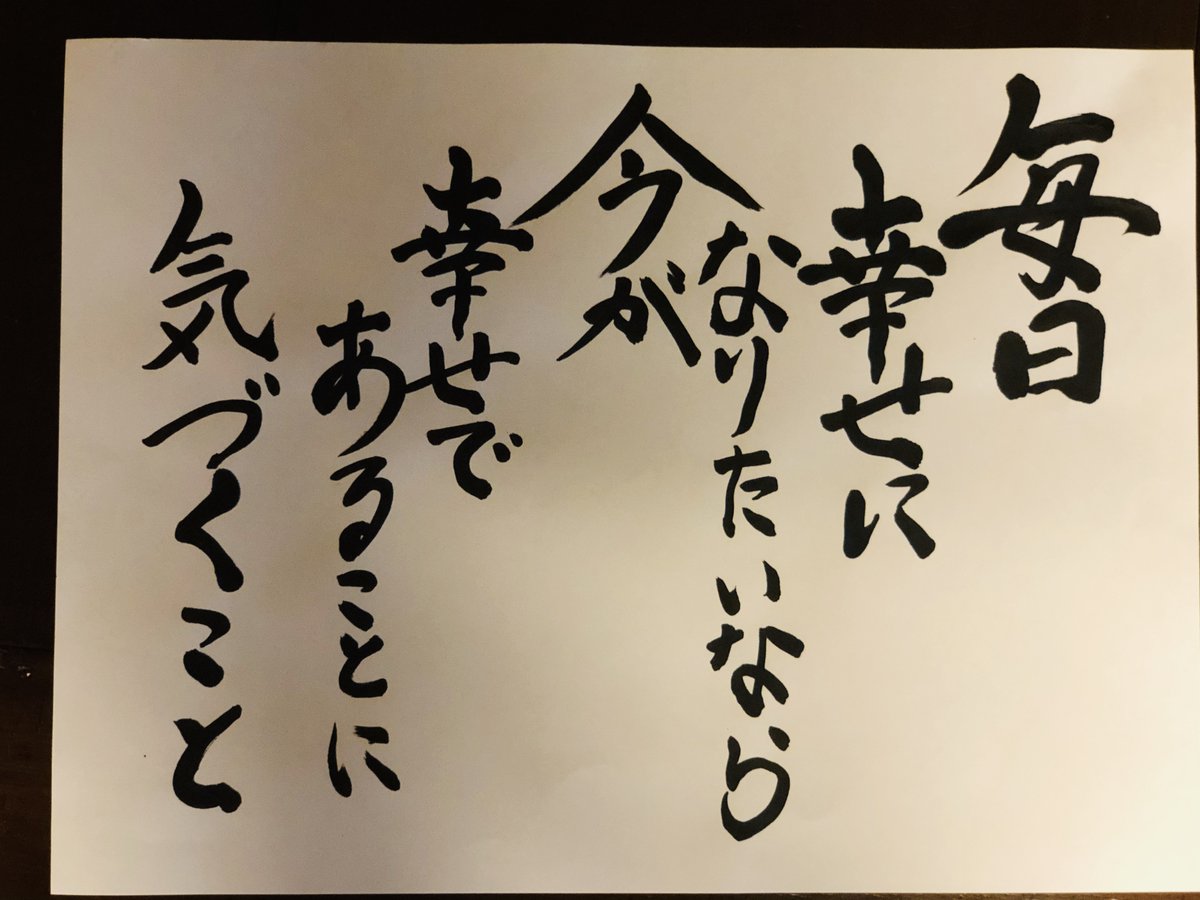 毎日
幸せに
なりたいなら
今が
幸せで
あることに
気づくこと